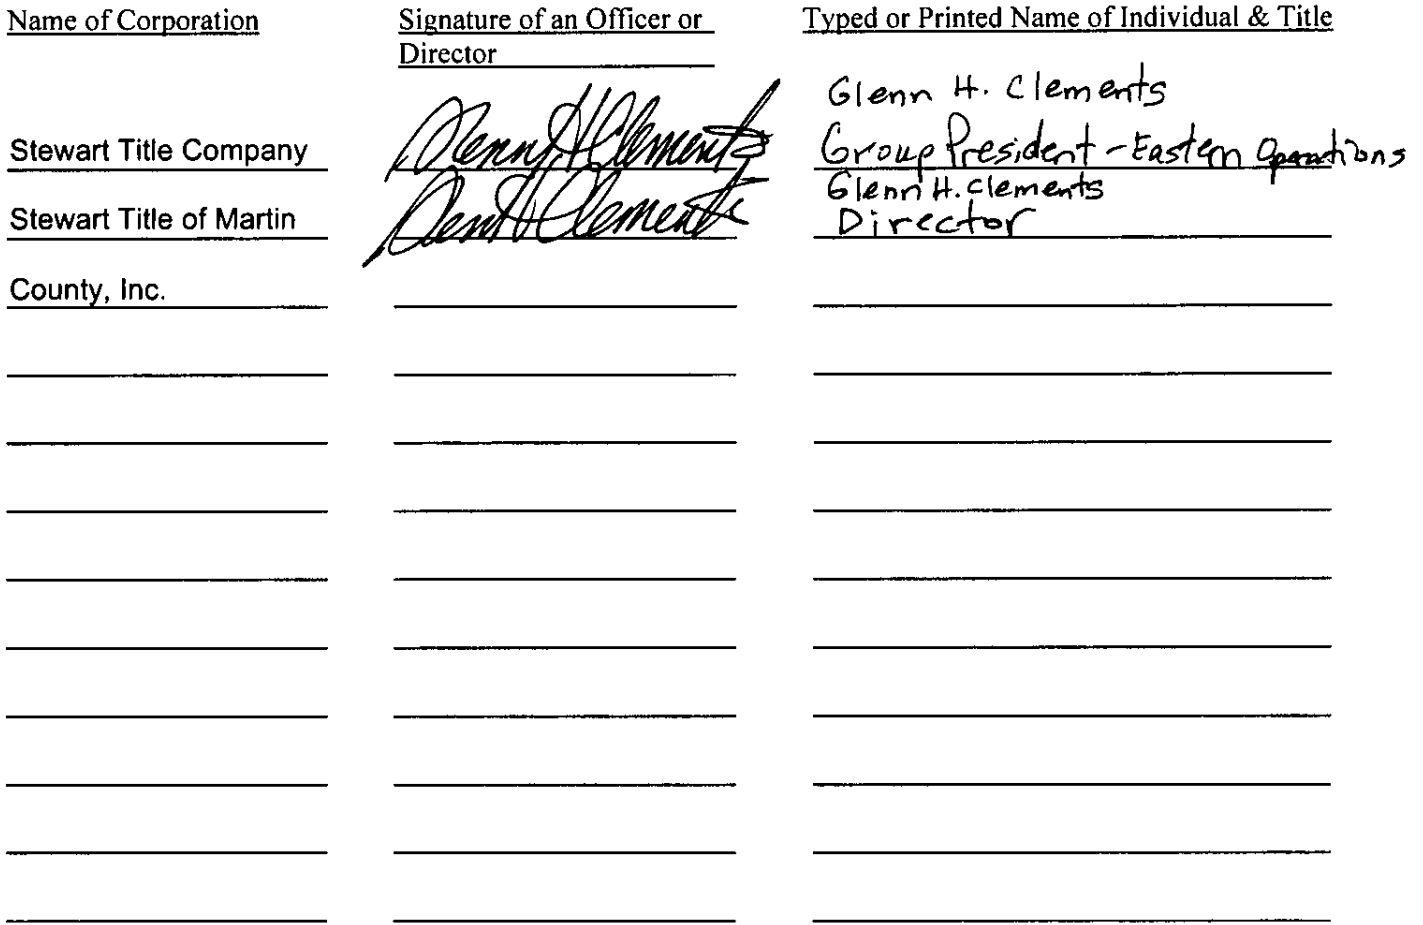 Name of Corporation
Signature of an Officer or
Director
Typed or Printed Name of Individual & Title
Stewart Title Company
Glenn H Clements
Glenn H. Clements
Group President - Eastern Operations
Stewart Title of Martin
Glenn H Clements
Glenn H. Clements
Director
County, Inc.